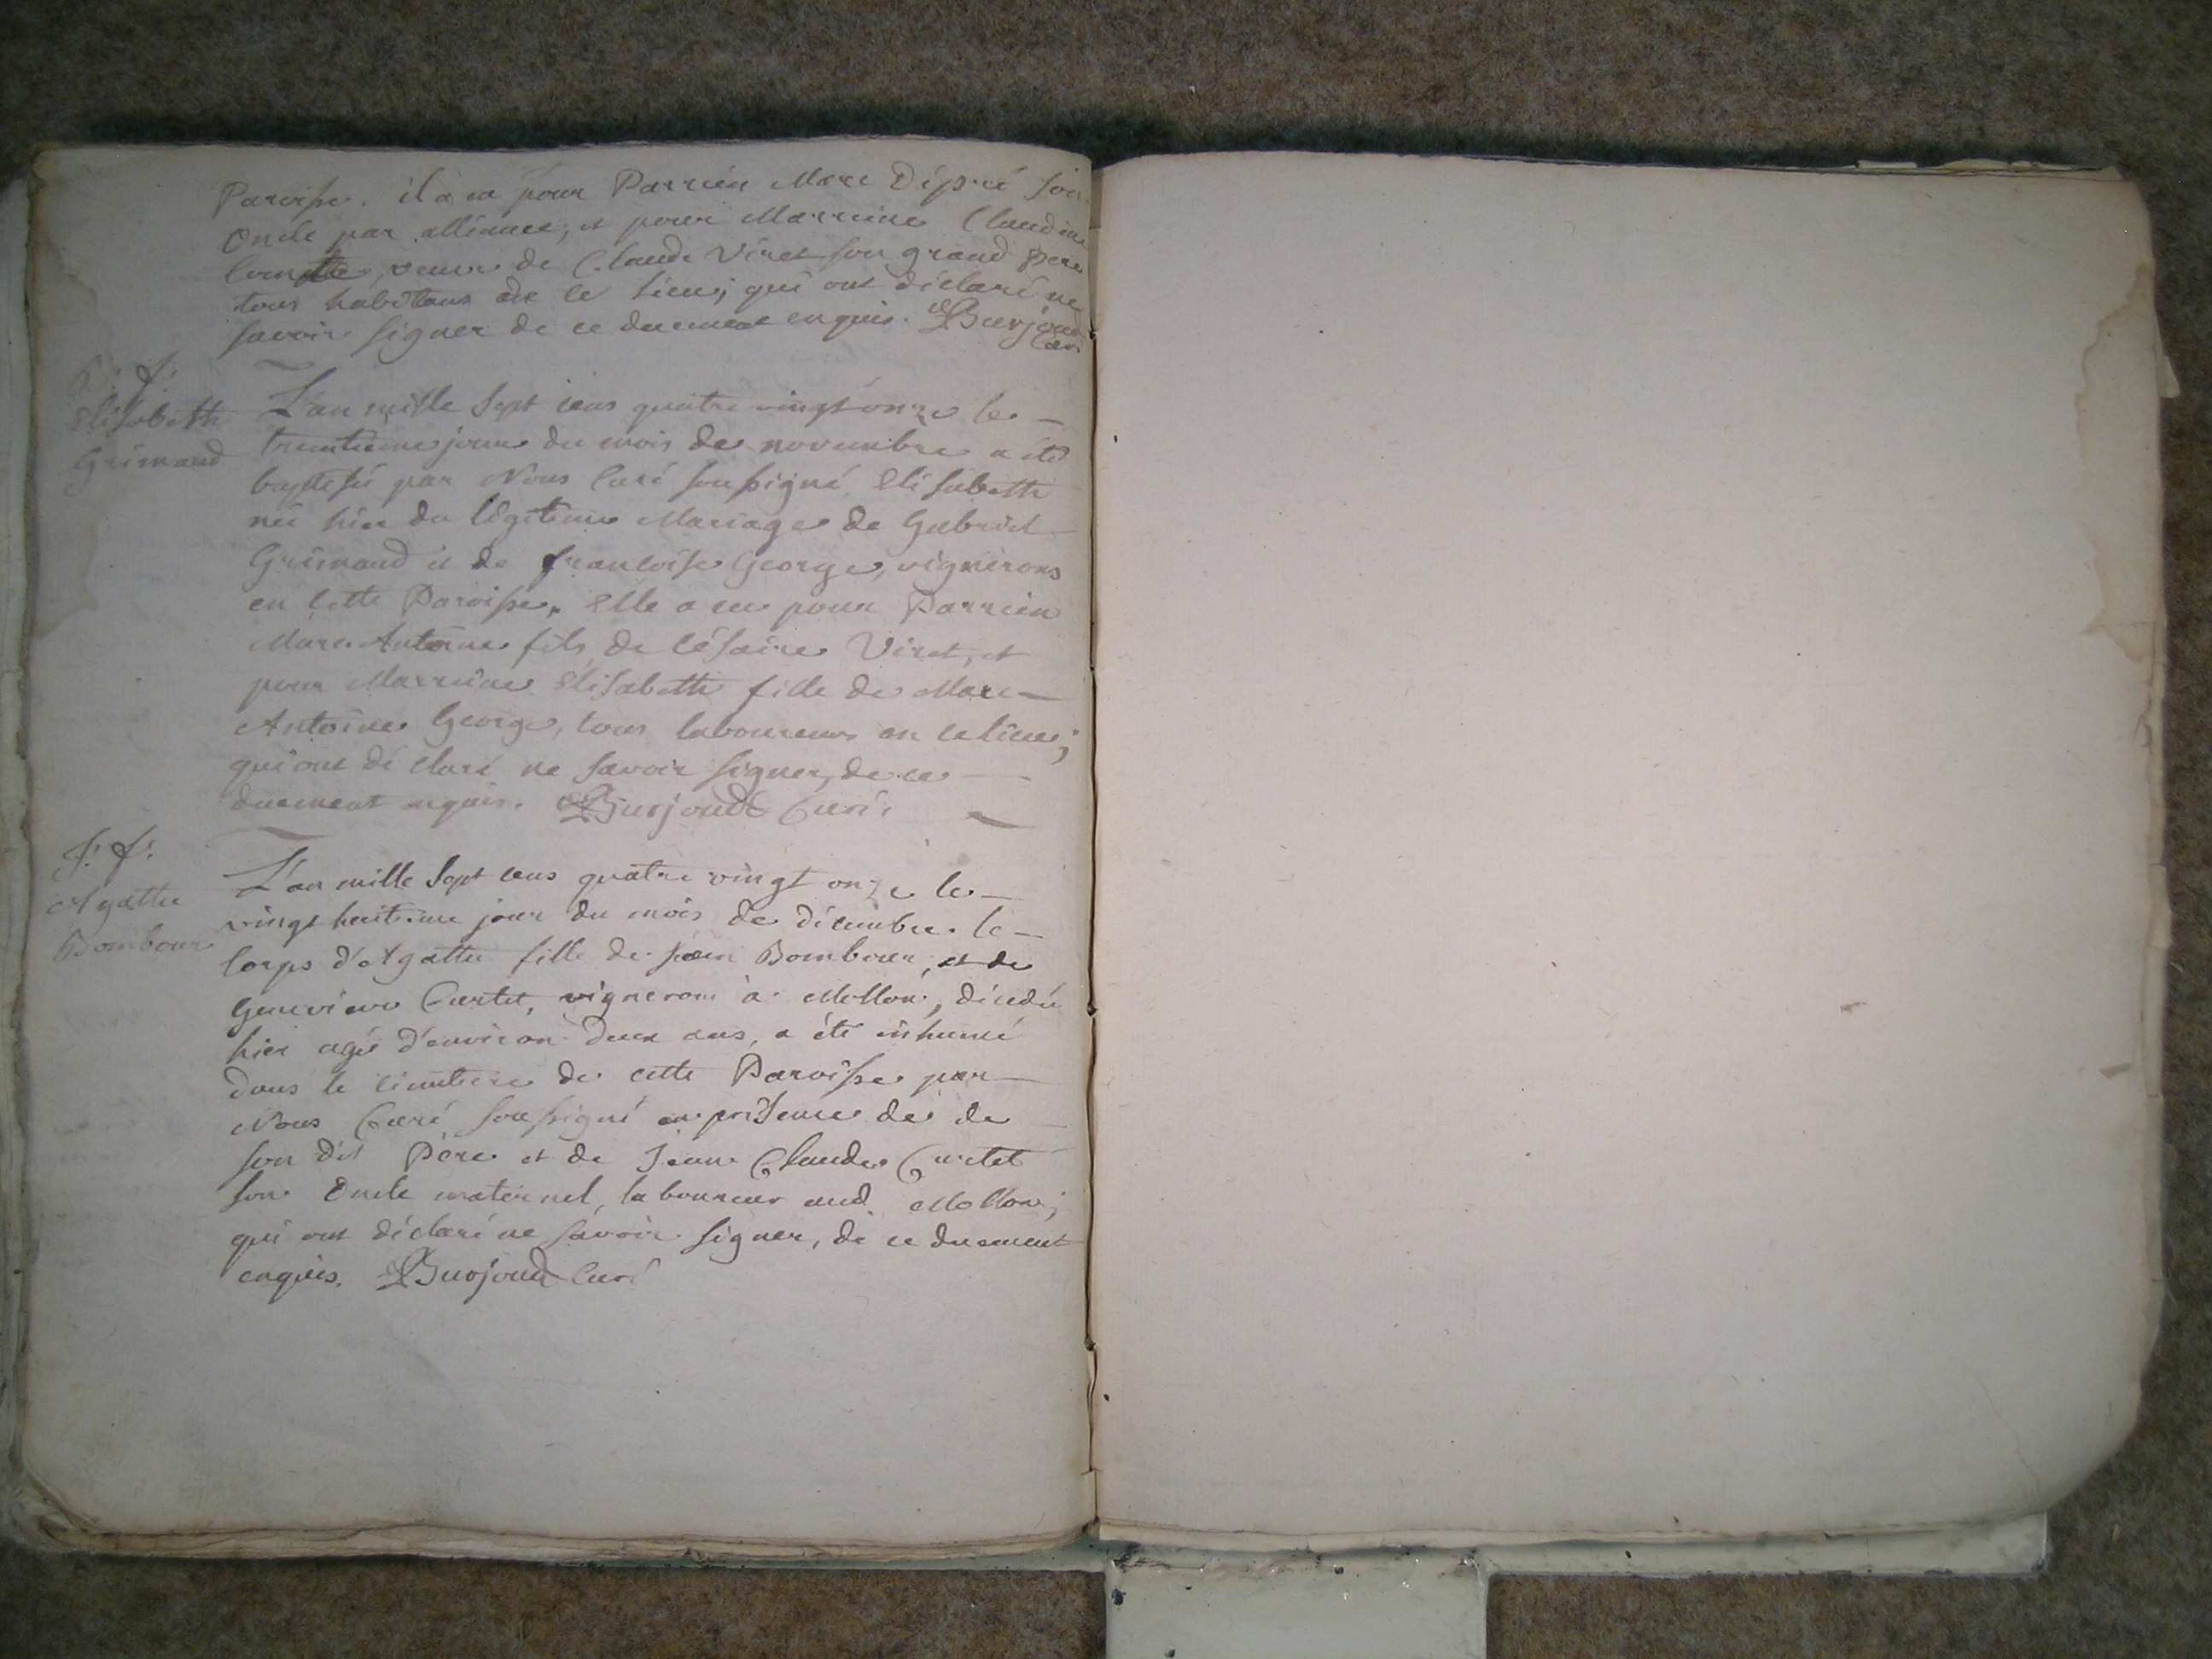 Paroisse. il a eu pour Parrien Marc Dépré son
Oncle par alliance, et pour Marreine Claudine
veuve de Claude Viret son grand Pere
tous habitans de ce lieu; qui ont déclaré ne
savoir signer de ce duement enquis. Burjoud
Curé
B. f.
Elisabeth
Grimaud
L'an mille sept cens quatre vingt onze le
trentieme jour du mois de novembre a été
baptisée par Nous Curé soussigné Elisabeth
née hier du légitime Mariage de Gabriel
Grimaud et de francoise George, vignerons
en cette Paroisse, Elle a eu pour Parrien
Marc Antoine fils de Césaire Viret, et
pour Marreine Elisabeth fille de Marc
Antoine George, tous laboureurs en ce lieu;
qui ont déclaré ne savoir signer, de ce
duement enquis. Burjoud Curé
S. f.
Agathe
Bombour
L'an mille sept cens quatre vingt onze le
vingt huitieme jour du mois de décembre le
Corps d'Agathe fille de jean Bombour, et de
Genevieve Curtet, vignerons à Mollon, décédée
hier agée d'environ deux ans, a été inhumé
dans le cimetiere de cette Paroisse par
Nous Curé soussigné en présence de de
son dit Pere et de Jean Claude Curtet
son Oncle maternel, laboureur aud. Mollon;
qui ont déclaré ne savoir signer, de ce duement
enquis. Burjoud Curé